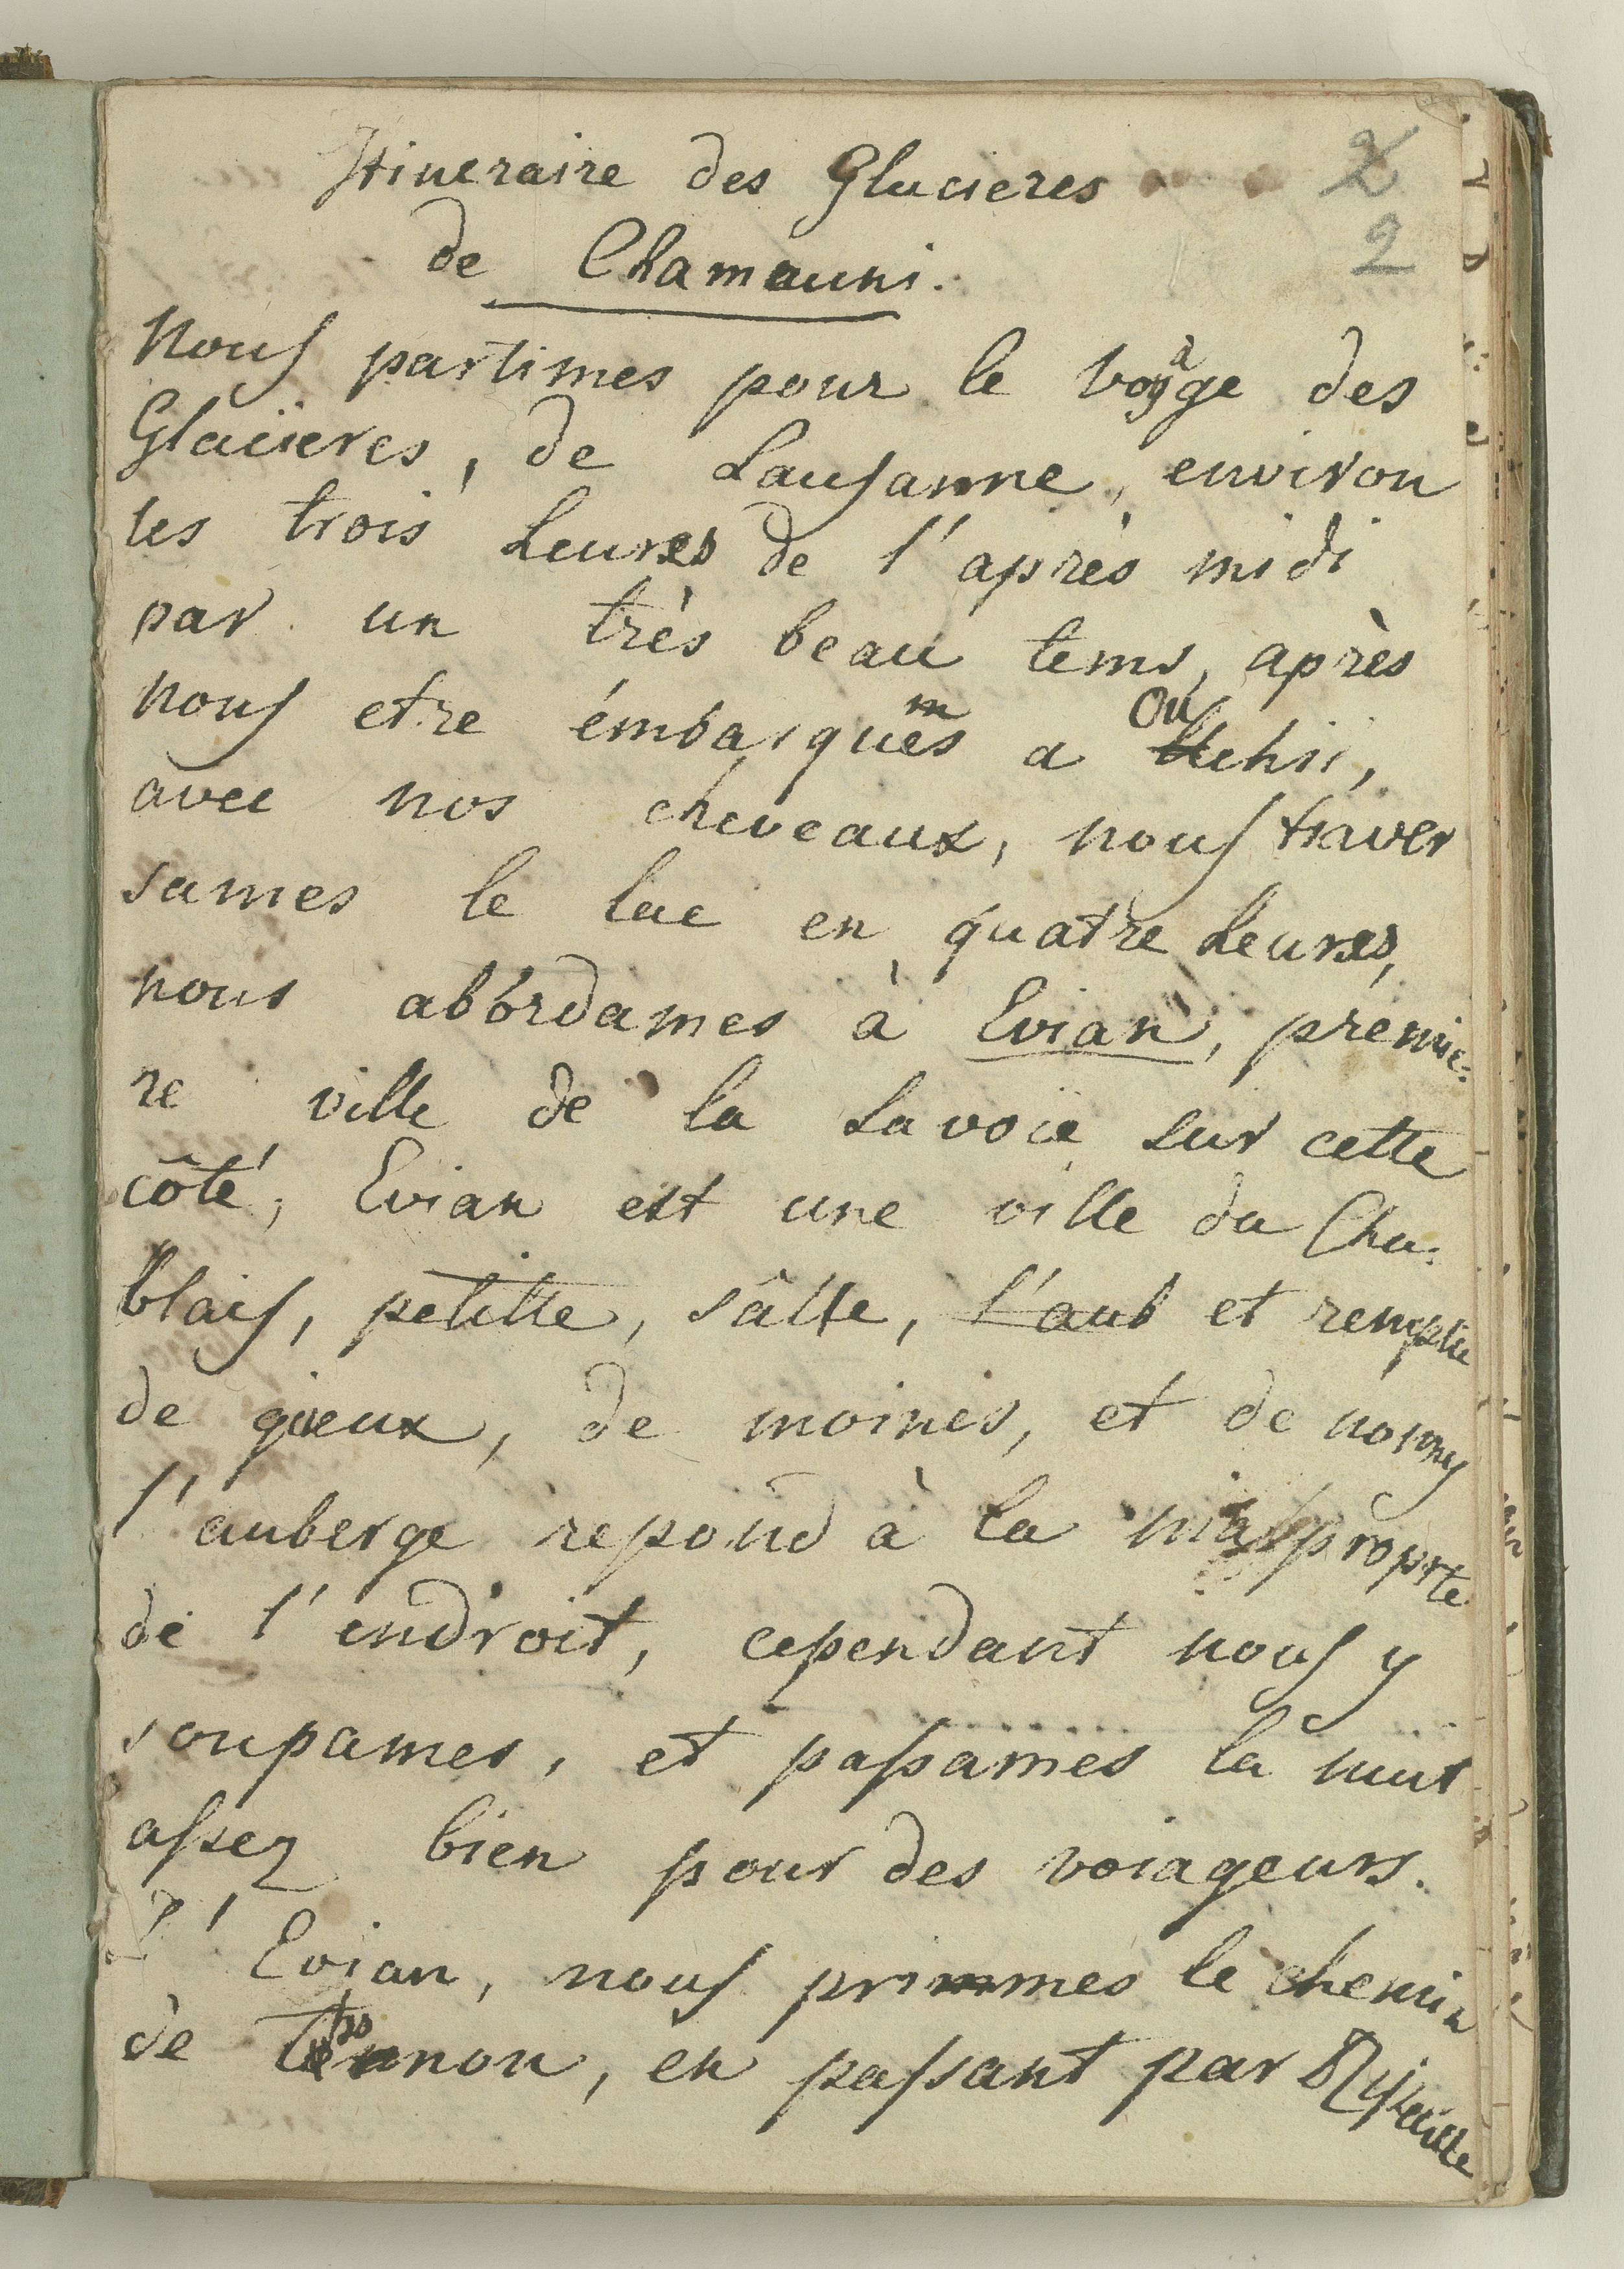 Itineraire des Glacieres
2
de Chamouni.
2
Nous partimes pour le voyage des
Glacieres, de Lausanne, environ
les trois heures de l'après midi
par un très beau tems, après
nous etre émbarqués a Ouchii,
avec nos cheveaux, nous traver
sames le lac en quatre heures,
nous abbordames à Evian, premie=
re ville de la Savoie sur cette
côté, Evian est une ville du Cha:
blais, petitte, sâlle, l'aub et remplie
de gieux, de moines, et de nonnes
l'auberge repond à la malproprte
de l'endroit, cependant nous y
soupames, et passames la nuit
assez bien pour des voiageurs.
D'Evian, nous primmes le chemin
de Tonnon, en passant par